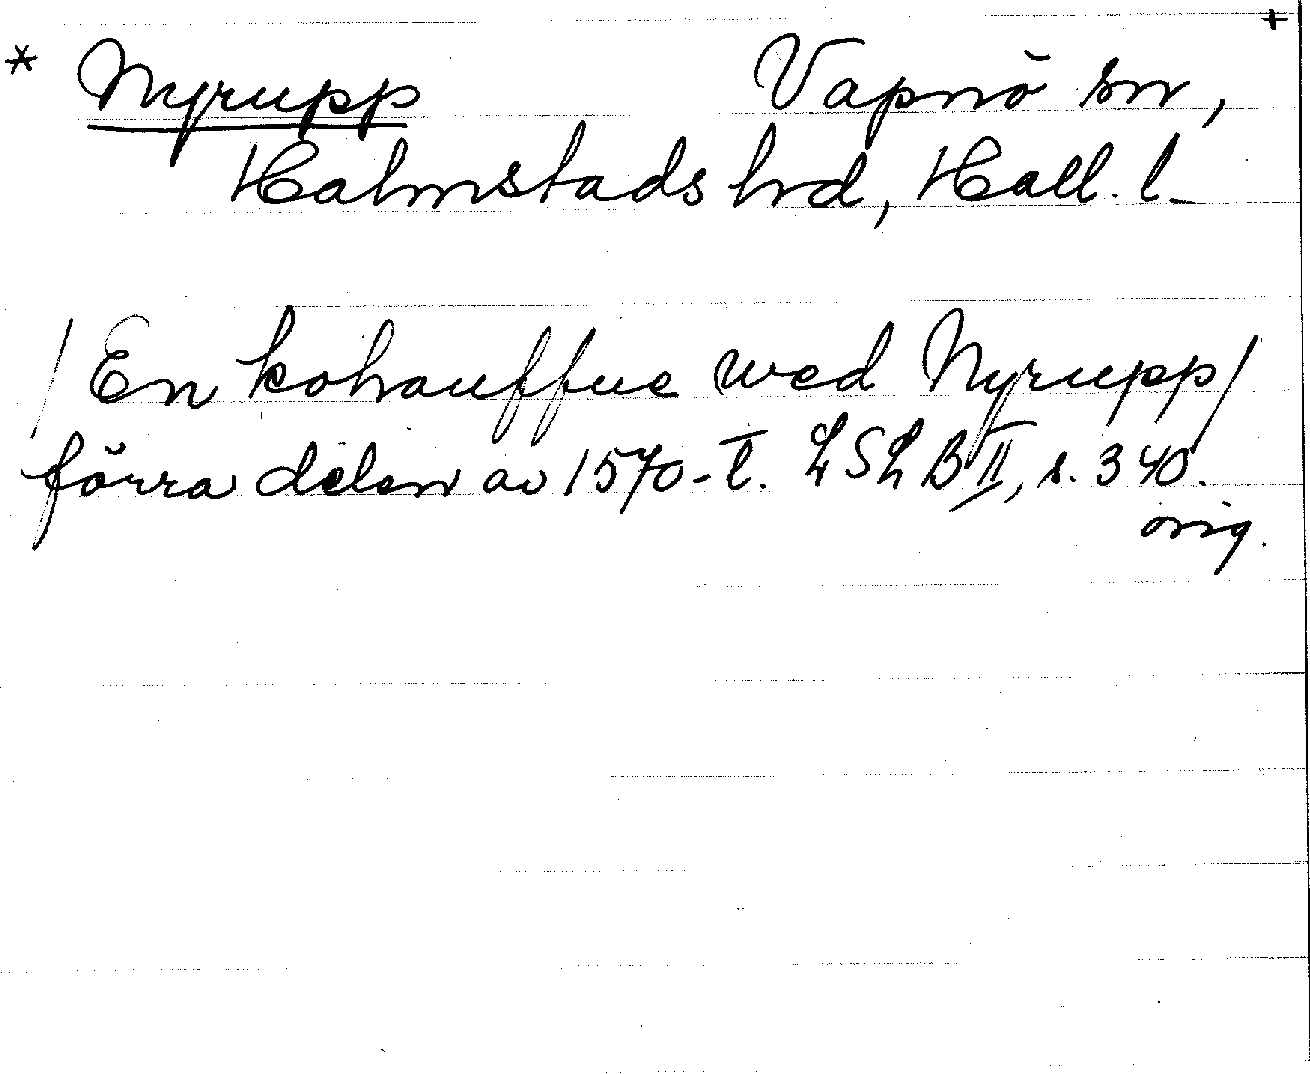 +
* Nyrupp Vapnö sn,
Halmstads hrd, Hall. l.
/ En kohauffue wed Nyrupp /
förra delen av 1570-t. LSLB II, s. 340.
orig.